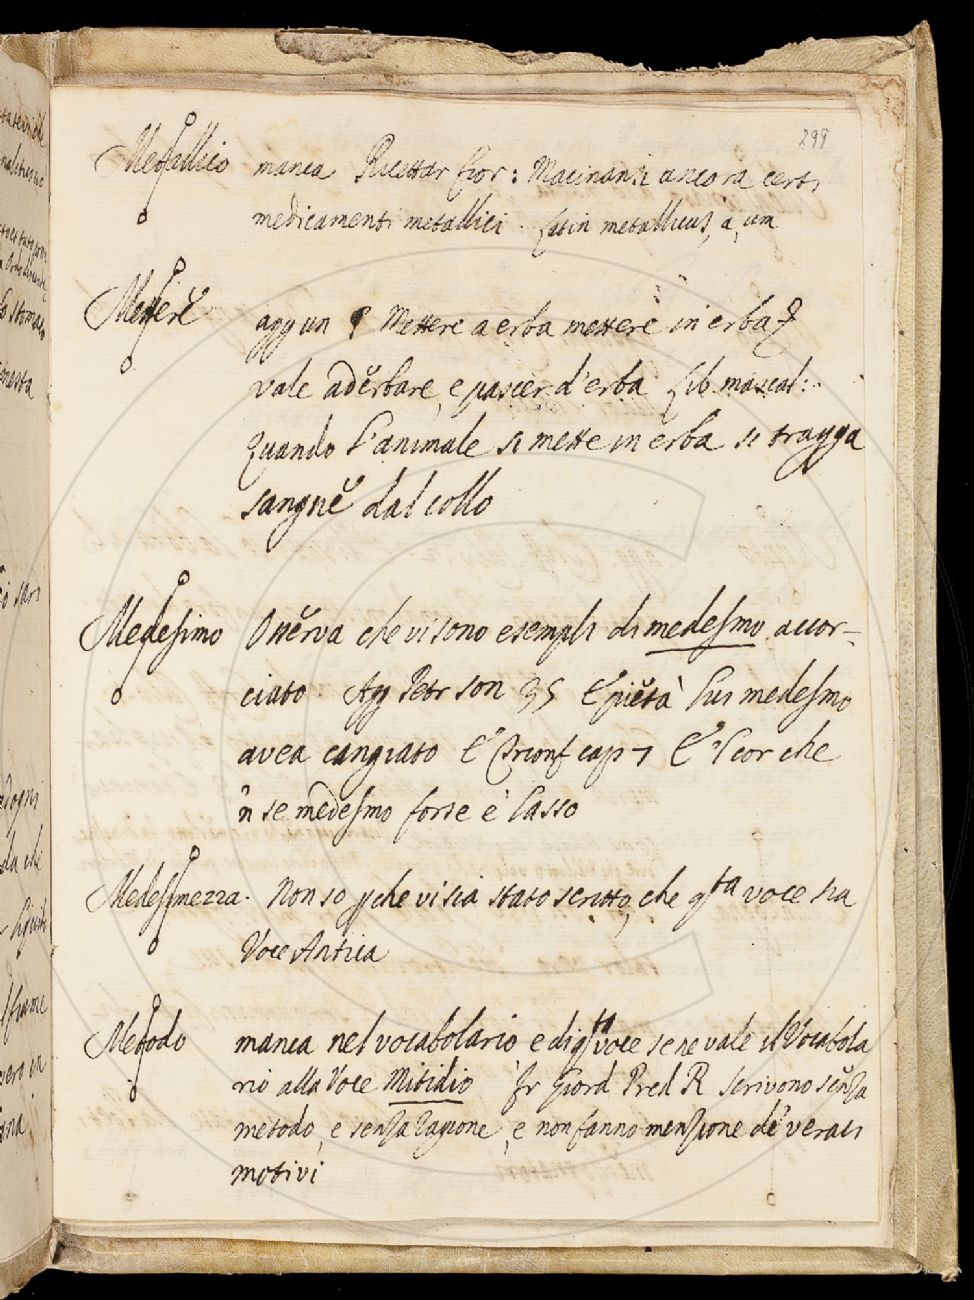 299
Metallico manca Ricettar fior: Macinansi ancora certi
medicamenti metallici. Latin metallicus, a, um
Mettere aggiun Mettere a erba mettere in erba
vale aderbare, e pascer d'erba Lib. mascal:
Quando l'animale si mette in erba si tragga
sangue dal collo
Medesimo Osserva che vi sono esempli di medesmo accor-
ciato Petr son 35 E pietà lui medesmo
avea cangiato E Trionf cap 7 E' l cor che
'n se medesmo forse è lasso
Medesimezza. Non so pche vi sia stato scritto, che qsta voce sia
Voce Antica
Metodo manca nel vocabolario e di qsta voce se ne vale il Vocabola
rio alla Voce Mitidio fr Giord Pred R Scrivono senza
metodo, e senza ragione, e non fanno menzione de' veraci
motivi